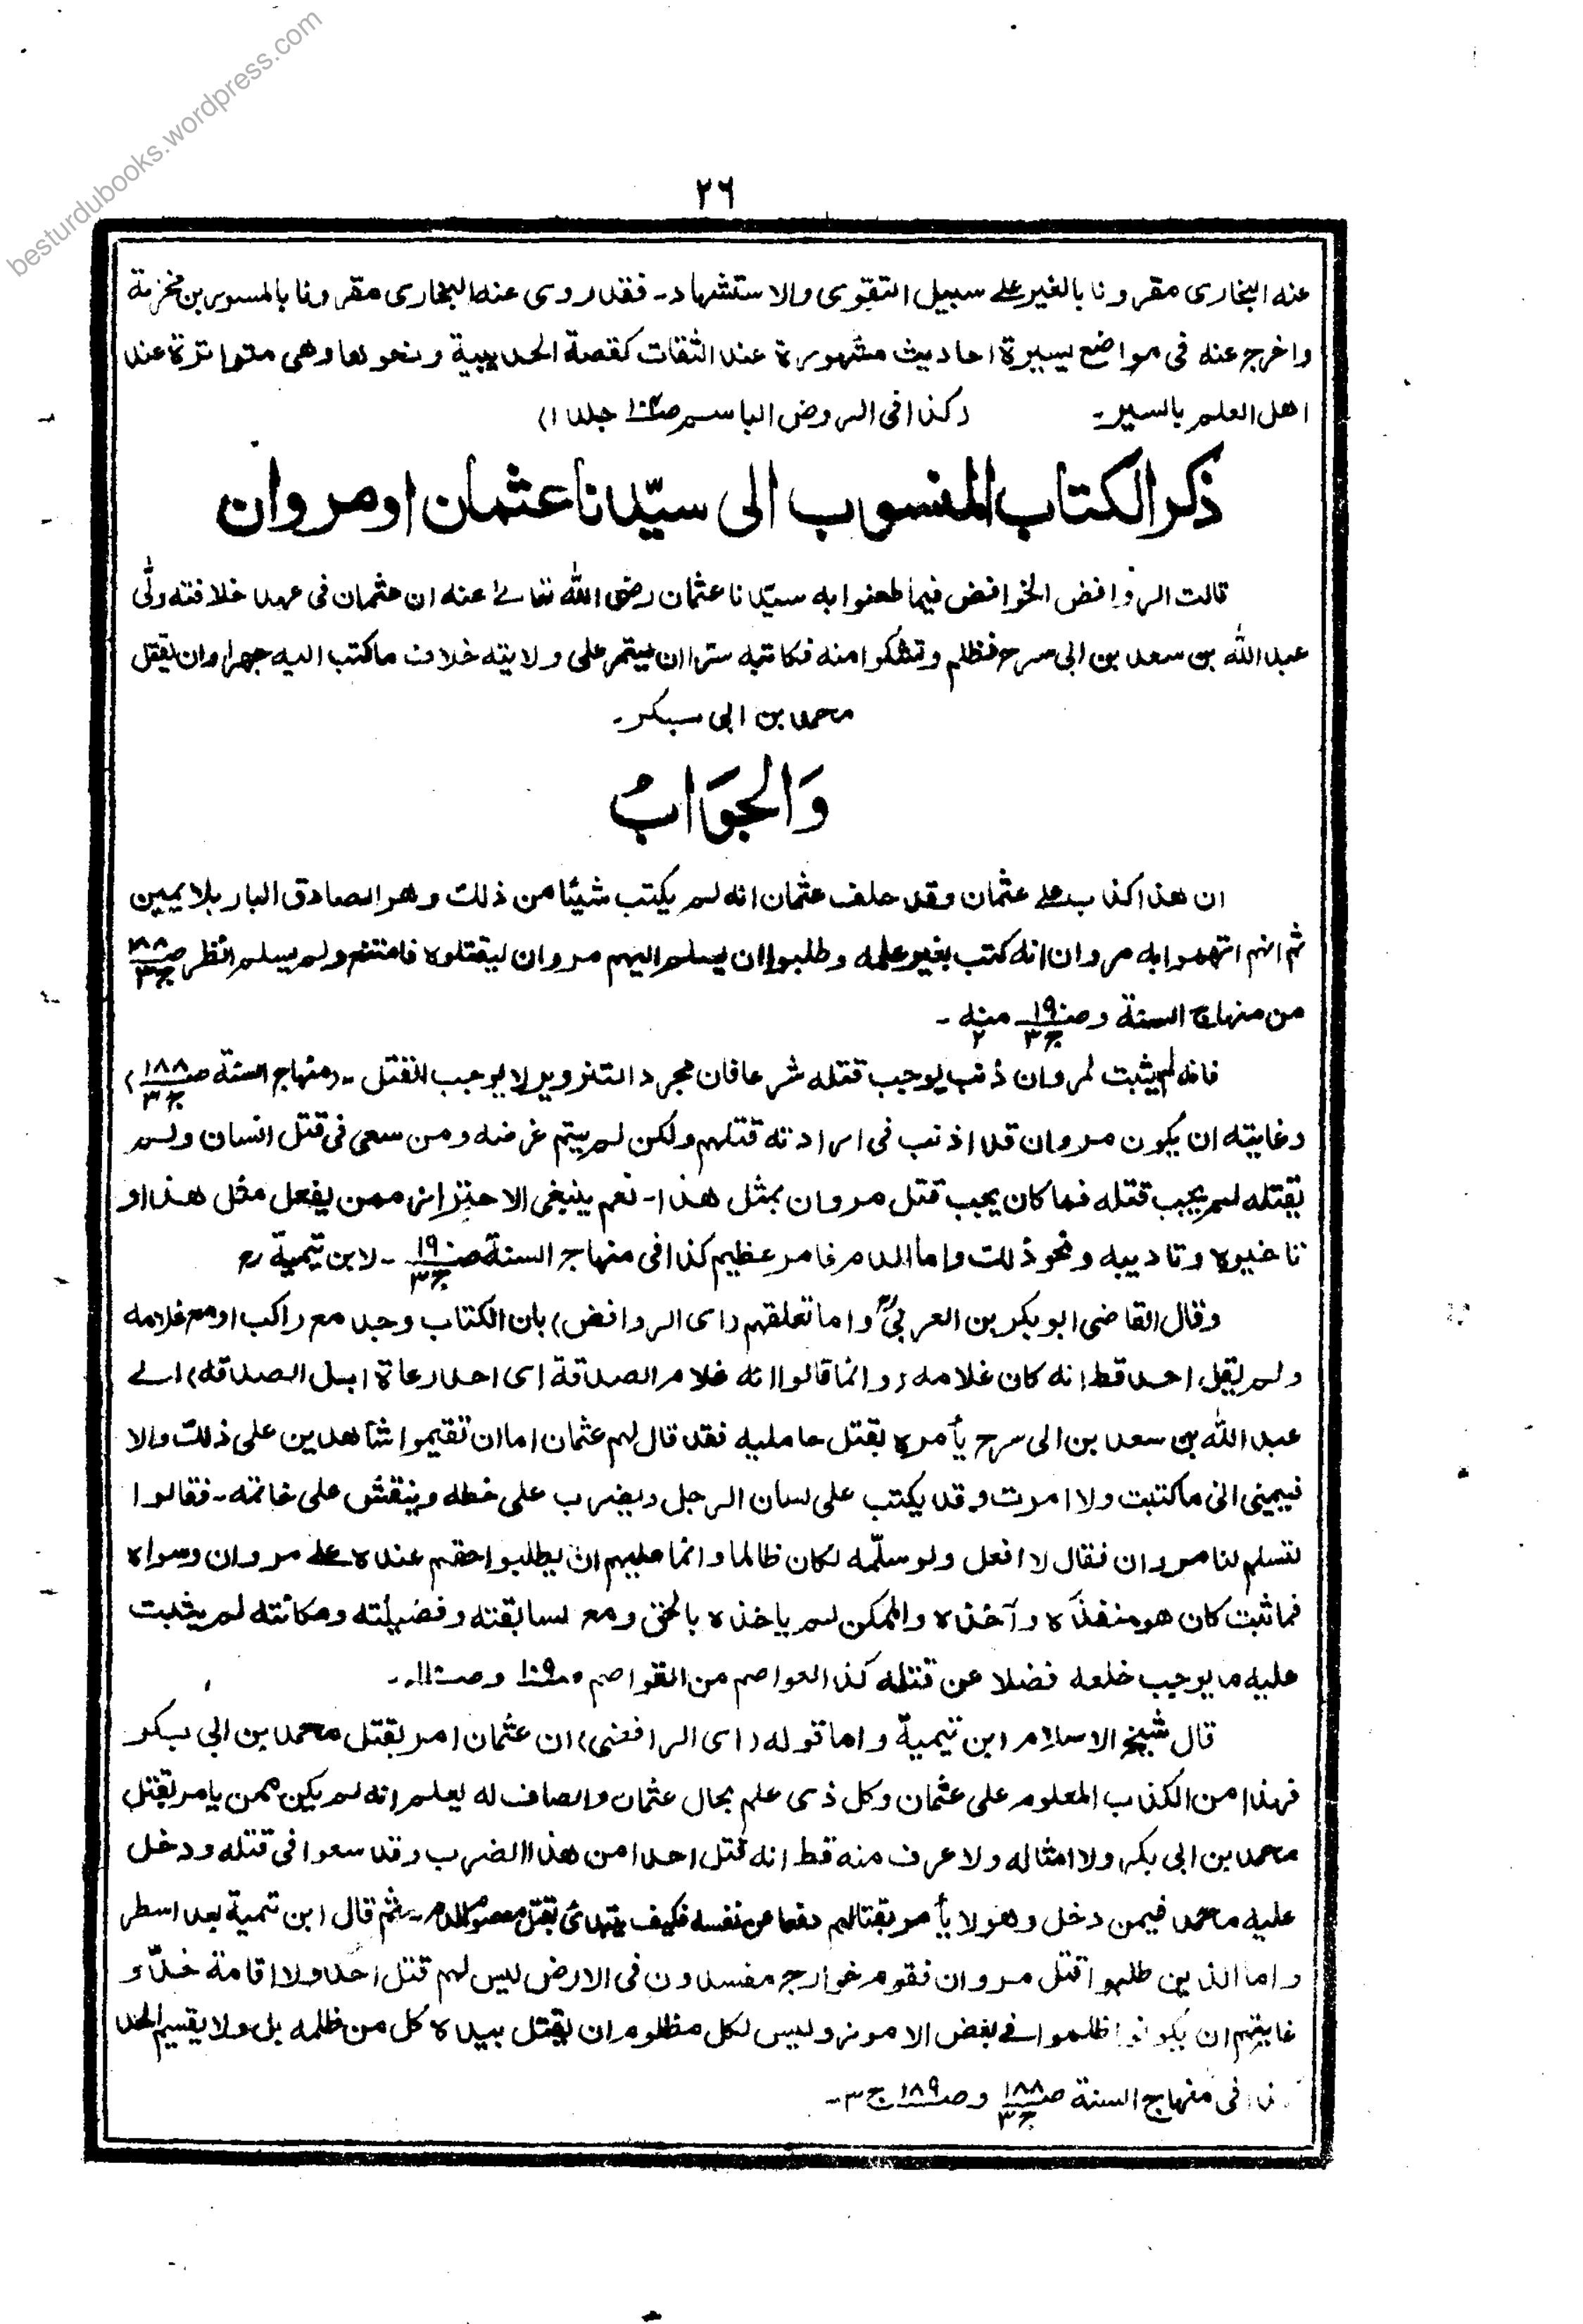 besturdubooks.wordpress.com
٢٦
عنه البخاری مقرونا بالغیر علے سبیل التقوی والاستشهاد۔ فقد روی عنه البخاری مقرونا بالمسور بن مخرمة
واخرج عنه فی مواضع یسیرة احادیث مشهورة عند الثقات کقصة الحدیبیة ونحوها وهی متواترة عند
اهل العلم بالسیر۔ (کذا فی الروض الباسم جلد ١)
ذکر الکتاب المنسوب الی سیّدنا عثمان او مروان
قالت الروافض الخوافض فیما طعنوا به سیّدنا عثمان رضی الله تعالےٰ عنه ان عثمان فی عهد خلافته ولّٰی
عبد الله بن سعد بن ابی سرح فظلم وتشکوا منه فکاتبه سترا ان یستمر علی ولایته خلاف ما کتب الیه جهرا وان یقتل
محمد بن ابی بکر۔
وَالجَوَابُ
ان هذا کذاب علے عثمان وقد حلف عثمان انه لم یکتب شیئا من ذلك وهو الصادق البار بلا یمین
ثم انهم اتهموا به مروان انه کتب بغیر علمه وطلبوا ان یسلم الیهم مروان لیقتلوه فامتنع ولم یسلم انظر صـ١٨٨ ج٣
من منهاج السنة وصـ١٩٠ ج٣ منه ۔
فانه لم یثبت لمروان ذنب یوجب قتله شرعا فان مجرد التزویر لا یوجب القتل ۔ (منهاج السنة صـ١٨٨ ج٣)
وغایته ان یکون مروان قد اذنب فی ارادته قتلهم ولکن لم یتم غرضه ومن سعی فی قتل انسان ولم
یقتله لم یجب قتله فما کان یجب قتل مروان بمثل هذا۔ نعم ینبغی الاحتراز ممن یفعل مثل هذا او
تاخیره وتادیبه ونحو ذلك واما الدم فامر عظیم کذا فی منهاج السنة صـ١٩٠ ج٣ ۔ لابن تیمیة رح
وقال القاضی ابوبکر بن العربیؒ واما تعلقهم (ای الروافض) بان الکتاب وجد مع راکب او مع غلامه
ولم یقل احد قط انه کان غلامه (وانما قالوا انه غلام الصدقة ای احد رعاة ابل الصدقة) الے
عبد الله بن سعد بن ابی سرح یأمره بقتل حاملیه فقد قال لهم عثمان اما ان تقیموا شاهدین علی ذلك والا
فیمینی انی ما کتبت ولا امرت وقد یکتب علی لسان الرجل ویضرب علی خطه وینقش علی خاتمه۔ فقالوا
لتسلم لنا مروان فقال لا افعل ولو سلّمه لکان ظالما وانما علیهم ان یطلبوا حقهم عنده علے مروان وسواه
فما ثبت کان هو منفذه وآخذه والممکن لم یاخذه بالحق ومع سابقته وفضیلته ومکانته لم یثبت
علیه ما یوجب خلعه فضلا عن قتله کذا العواصم من القواصم صـ١٠٩ وصـ١١٠۔
قال شیخ الاسلام ابن تیمیة واما قوله (ای الرافضی) ان عثمان امر بقتل محمد بن ابی بکر
فهذا من الکذاب المعلوم علی عثمان وکل ذی علم بحال عثمان وانصاف له یعلم انه لم یکن ممن یامر بقتل
محمد بن ابی بکر ولا امثاله ولا عرف منه قط انه قتل احدا من هذا الضرب وقد سعوا فی قتله ودخل
علیه محمد فیمن دخل وهو لا یأمر بقتالهم دفعا عن نفسه فکیف یبتدئ بقتل معصوم الدم ۔ ثم قال ابن تیمیة بعد اسطر
واما الذین طلبوا قتل مروان فقوم خوارج مفسدون فی الارض لیس لهم قتل احد ولا اقامة حد و
غایتهم ان یکونوا ظلموا فے بعض الامور ولیس لکل مظلوم ان یقتل بیده کل من ظلمه بل ولا یقیم الحد
فی منهاج السنة صـ١٨٨ ج٣ وصـ١٨٩ ج ٣۔